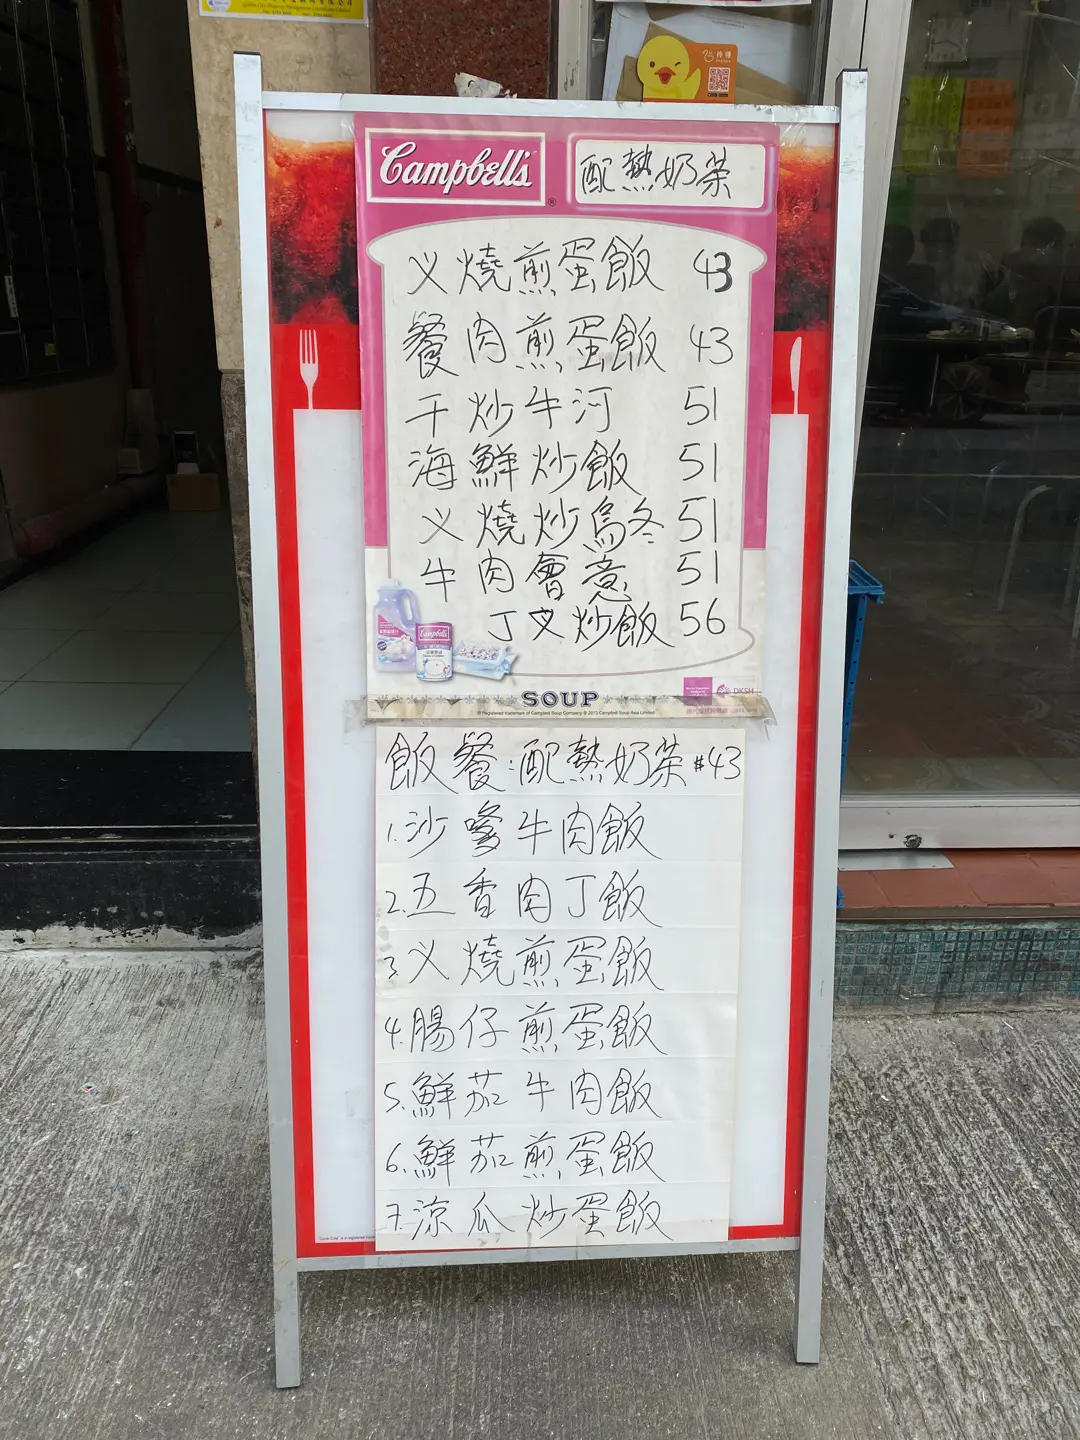 Campbell's®
配熱奶茶
乂燒煎蛋飯 43
餐肉煎蛋飯 43
干炒牛河 51
海鮮炒飯 51
乂燒炒烏冬 51
牛肉會意 51
丁叉炒飯 56
Campbell's
SOUP
DKSH
飯餐:配熱奶茶 #43
1.沙嗲牛肉飯
2.五香肉丁飯
3.乂燒煎蛋飯
4.腸仔煎蛋飯
5.鮮茄牛肉飯
6.鮮茄煎蛋飯
7.涼瓜炒蛋飯